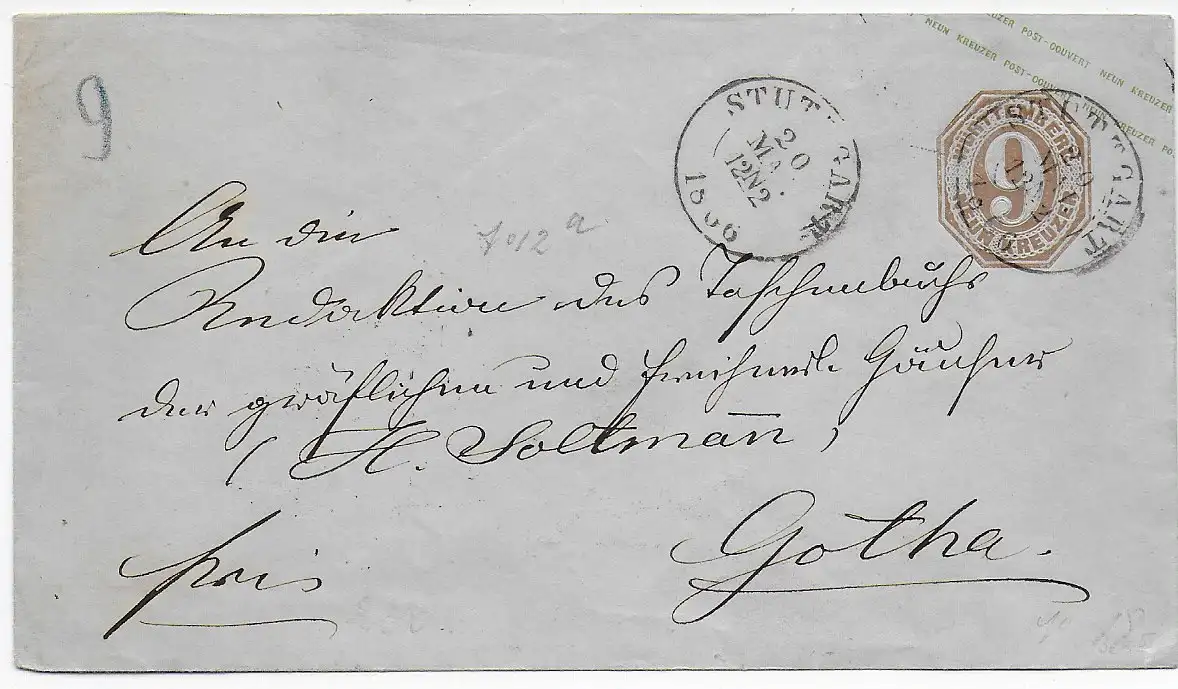 NEUN KREUZER POST-COUVERT NEUN KREUZER
9
STUTTGART
20
12N2
1866
WÜRTTEMBERG
9
NEUN KREUZER
STUTTGART
20
An die
Redaktion des Taschenbuchs
der gräflichen und freiherrl. Häuser
(H. Soltmann)
frei
Gotha.